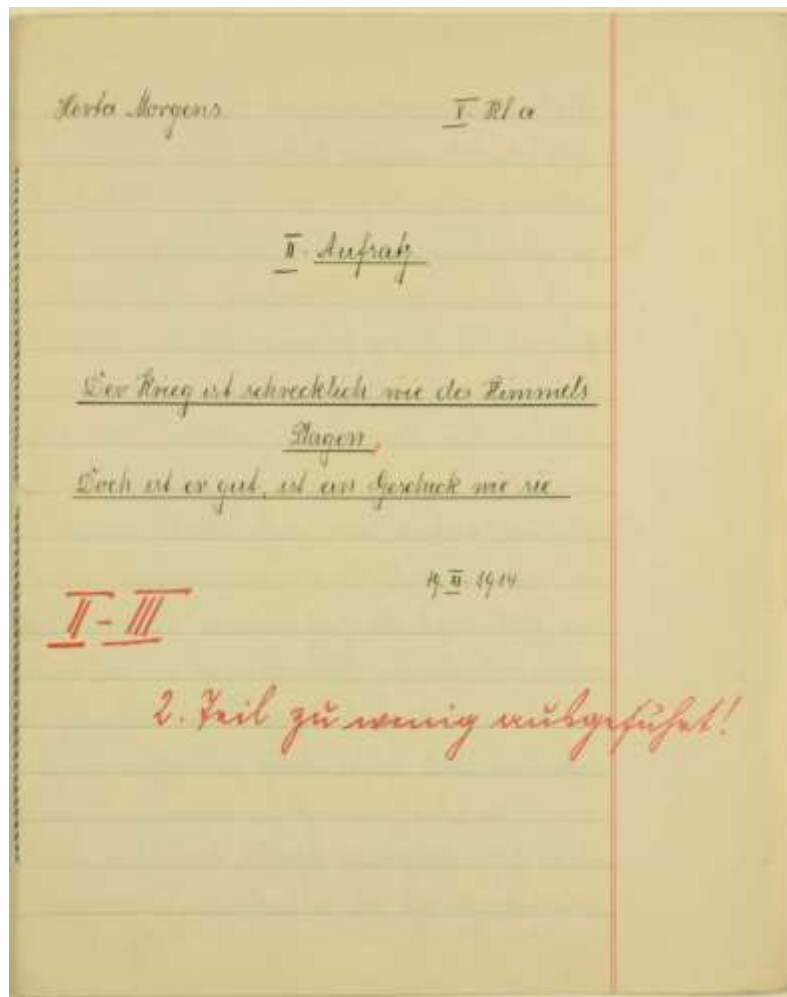 Herta Morgens V. Kl a
II. Aufsatz
Der Krieg ist schrecklich wie des Himmels
Plagen,
Doch ist er gut, ist ein Geschick wie sie
19. XI. 1914
II-III
2. Teil zu wenig ausgeführt!